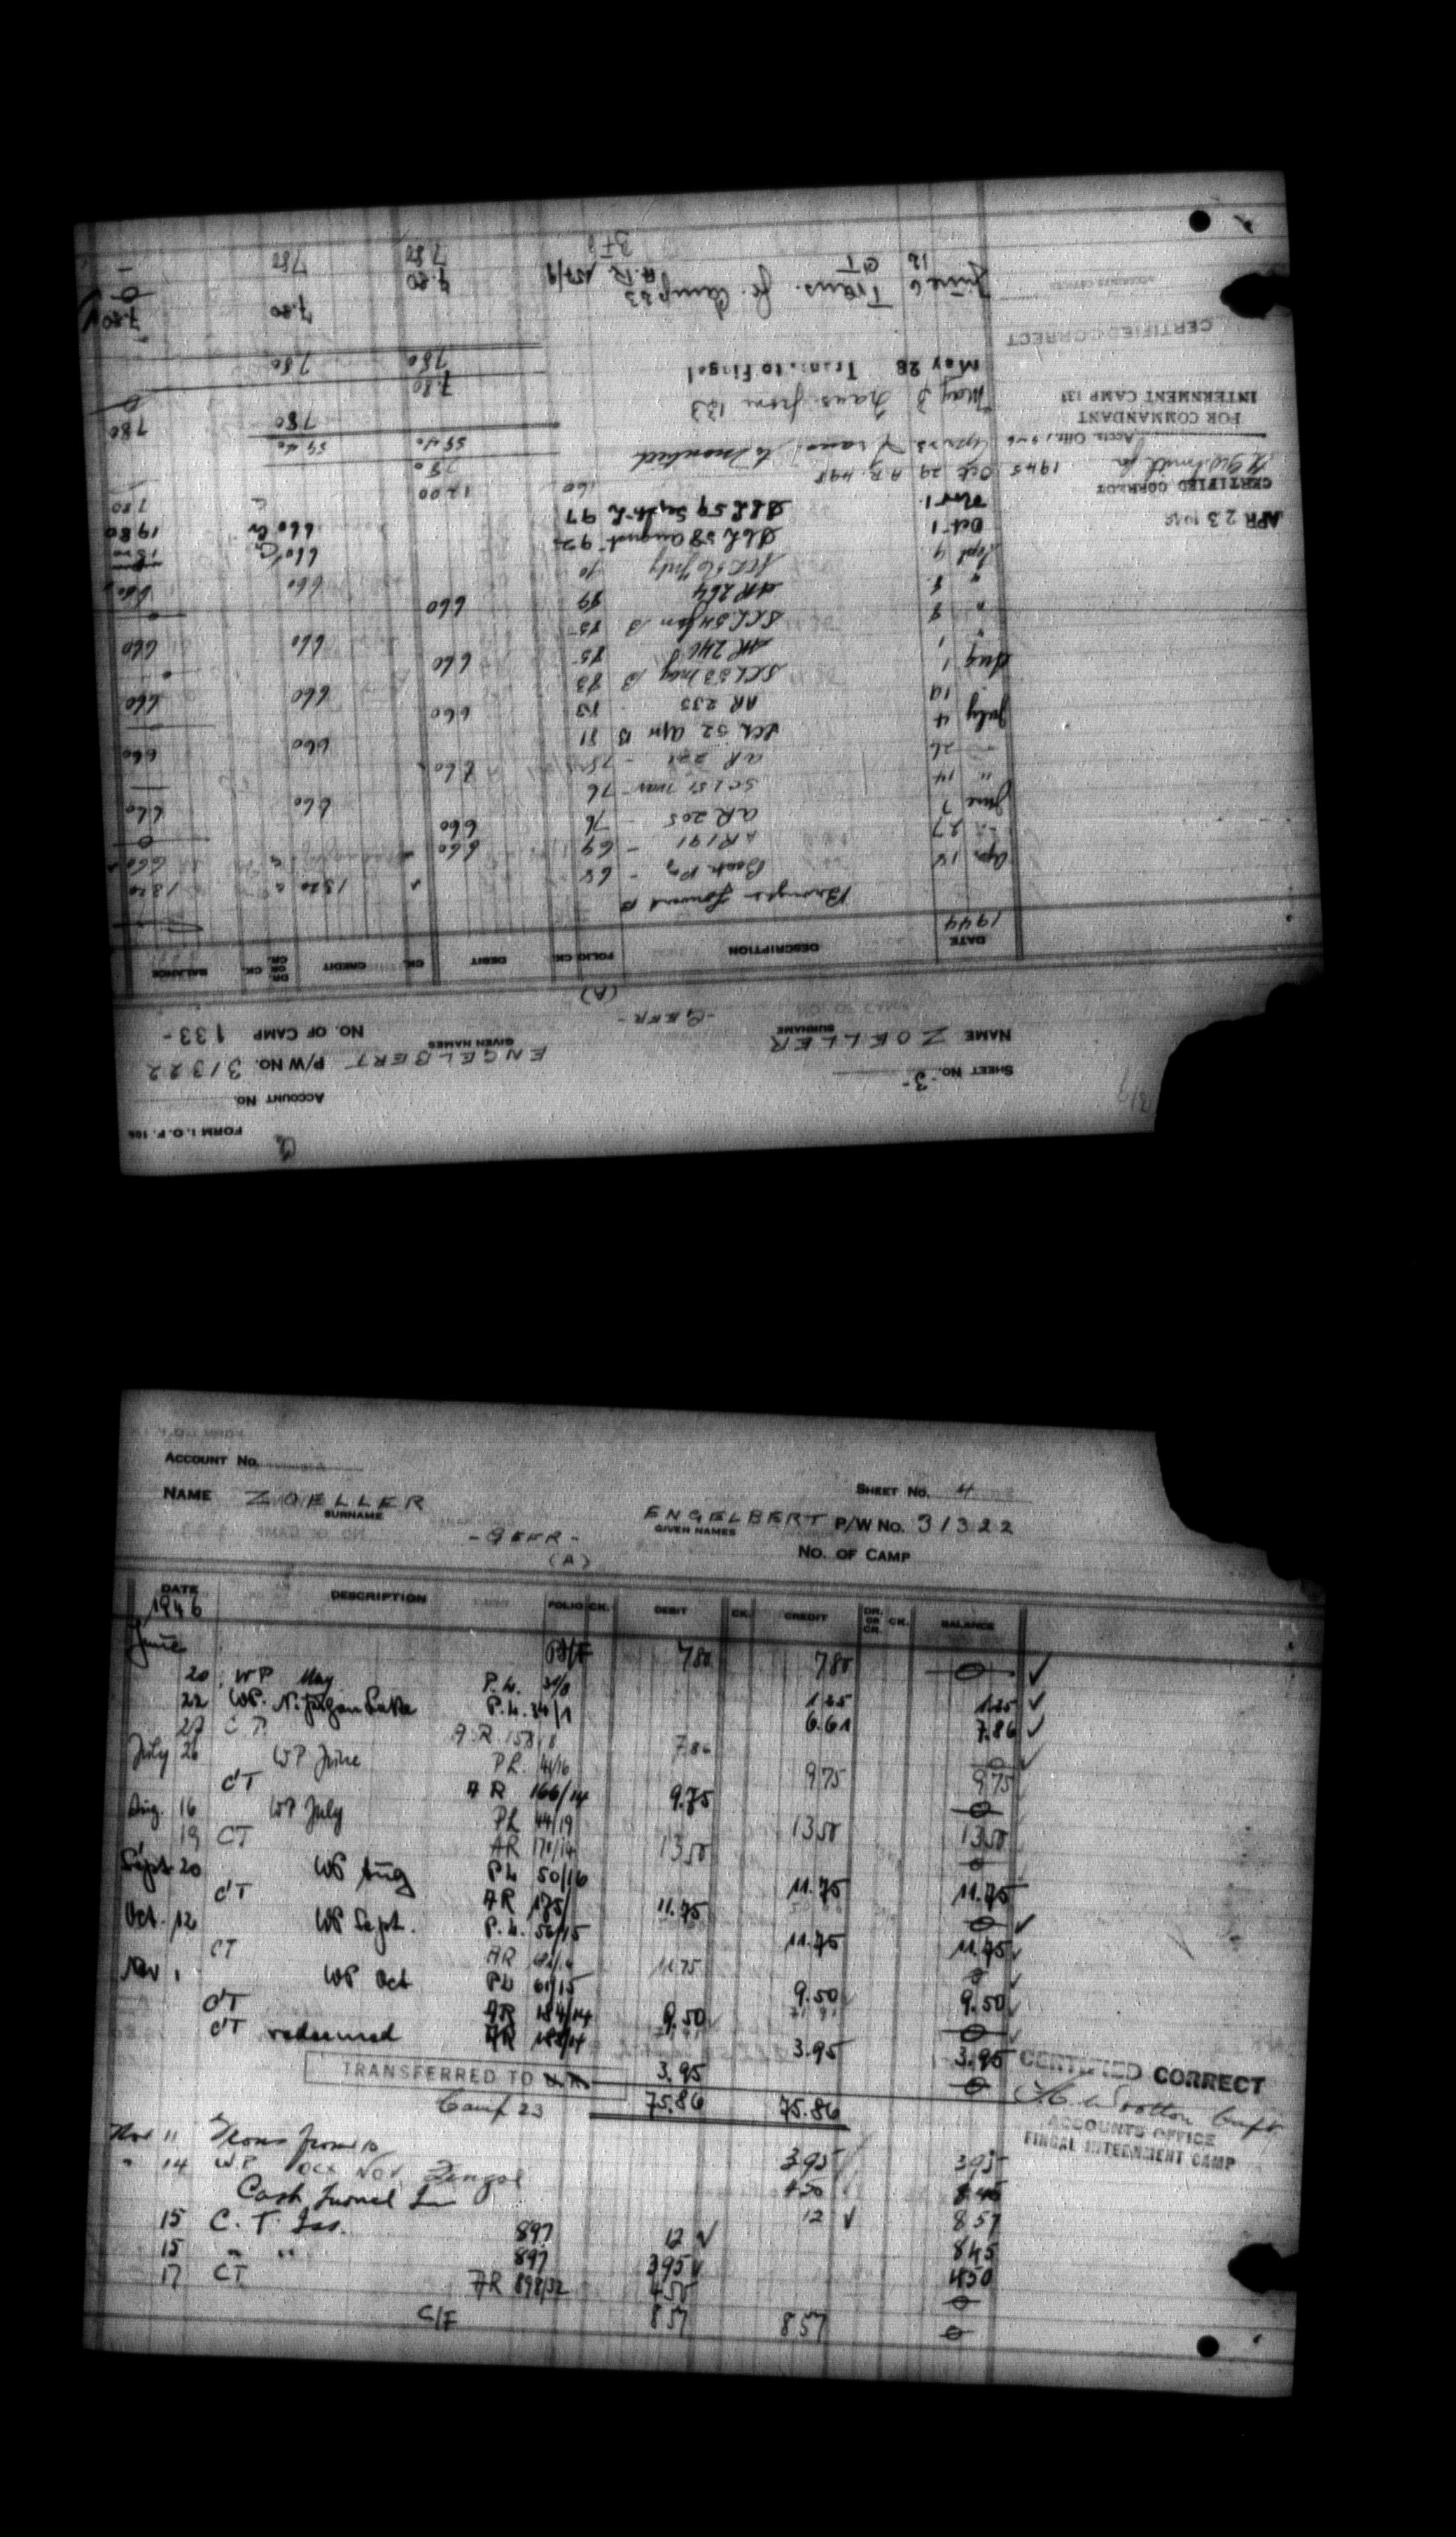 FORM I.O.F. 106
ACCOUNT No.
SHEET No. -3-
NAME ZOELLER ENGELBERT P/W No. 31322
SURNAME GIVEN NAMES
-GEFR- NO. OF CAMP 133-
(A)
DATE DESCRIPTION FOLIO CK. DEBIT CK. CREDIT DR. OR CR. CK. BALANCE
1944
Brought Forward 1320 1320
Apr 18 68 660
27 AR 191 - 69 660 0
June 7 AR 205 - 76 660
" 14 SCL 51 Mar - 76 660 660
26 AR 221 - 78
July 4 SCL 52 Apr 81 660 660
19 AR 235 83 660
Aug 1 SCL 53 May 83 660 660
" 1 AR 246 85 660
" 8 SCL 54 Jun 85 660 660
" 8 AR 264 89 660
Sept 9 SCL 56 July 90 660 660
Oct 1 SCL 58 August 92 660 Cr
Nov 1 SCL 59 Sept 97 660 Cr 1980
1945 Oct 29 A.R. 498 160 1200 780
APR 23 1946
CERTIFIED CORRECT
Accts. Offr.
FOR COMMANDANT
INTERNMENT CAMP 133
780
59 40 59 40
May 3 Trans from 133 780 780
May 28 Trans. to Fingal 7.80 0
780 780
CERTIFIED CORRECT
ACCOUNTS OFFICE
June 6 Trans. fr. Camp 133 7.80 7.80
12 CT A.R. 154/9 7.80 0
780 780
FORM I.O.F.
ACCOUNT No.
SHEET No. 4
NAME ZOELLER ENGELBERT P/W No. 31322
SURNAME GIVEN NAMES
-GEFR- NO. OF CAMP
(A)
DATE DESCRIPTION FOLIO CK. DEBIT CK. CREDIT DR. OR CR. CK. BALANCE
1946
June B/F 780 780 0
20 WP May P.L. 1.25 1.25
22 WP. P.L. 34/1 6.61 7.86
27 C.T. A.R. 158/8 7.86 0
July 26 WP June PL. 41/16 975 975
CT AR 166/14 9.75 0
Aug. 16 WP July PL 44/19 1350 1350
19 CT AR 170/14 1350 0
Sept 20 WP Aug PL 50/16 11.75 11.75
CT AR 175/ 11.75 0
Oct. 12 WP Sept. P.L. 56/15 11.75 11.75
CT AR 11.75 0
Nov 1 WP Oct PL 61/15 9.50 9.50
CT AR 184/14 9.50 0
CT redeemed AR 188/4 3.95 3.95
TRANSFERRED TO 3.95 0
Camp 23 75.86 75.86
CERTIFIED CORRECT
Wootton Capt
ACCOUNTS OFFICE
FINGAL INTERNMENT CAMP
Nov 11 Trans from 395 395
" 14 W.P. Oct Nov Fingal 450 845
Cash Journal 12 857
15 C.T. Iss. 897 12 845
15 " " 897 395 450
17 CT AR 898/32 450 0
C/F 857 857 0